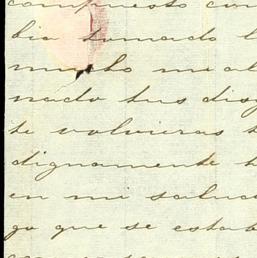 compuesto con
bia tomado l
mucho me al
nado tus dis
te volvieras
dignamente
en mi salud
go que se estab